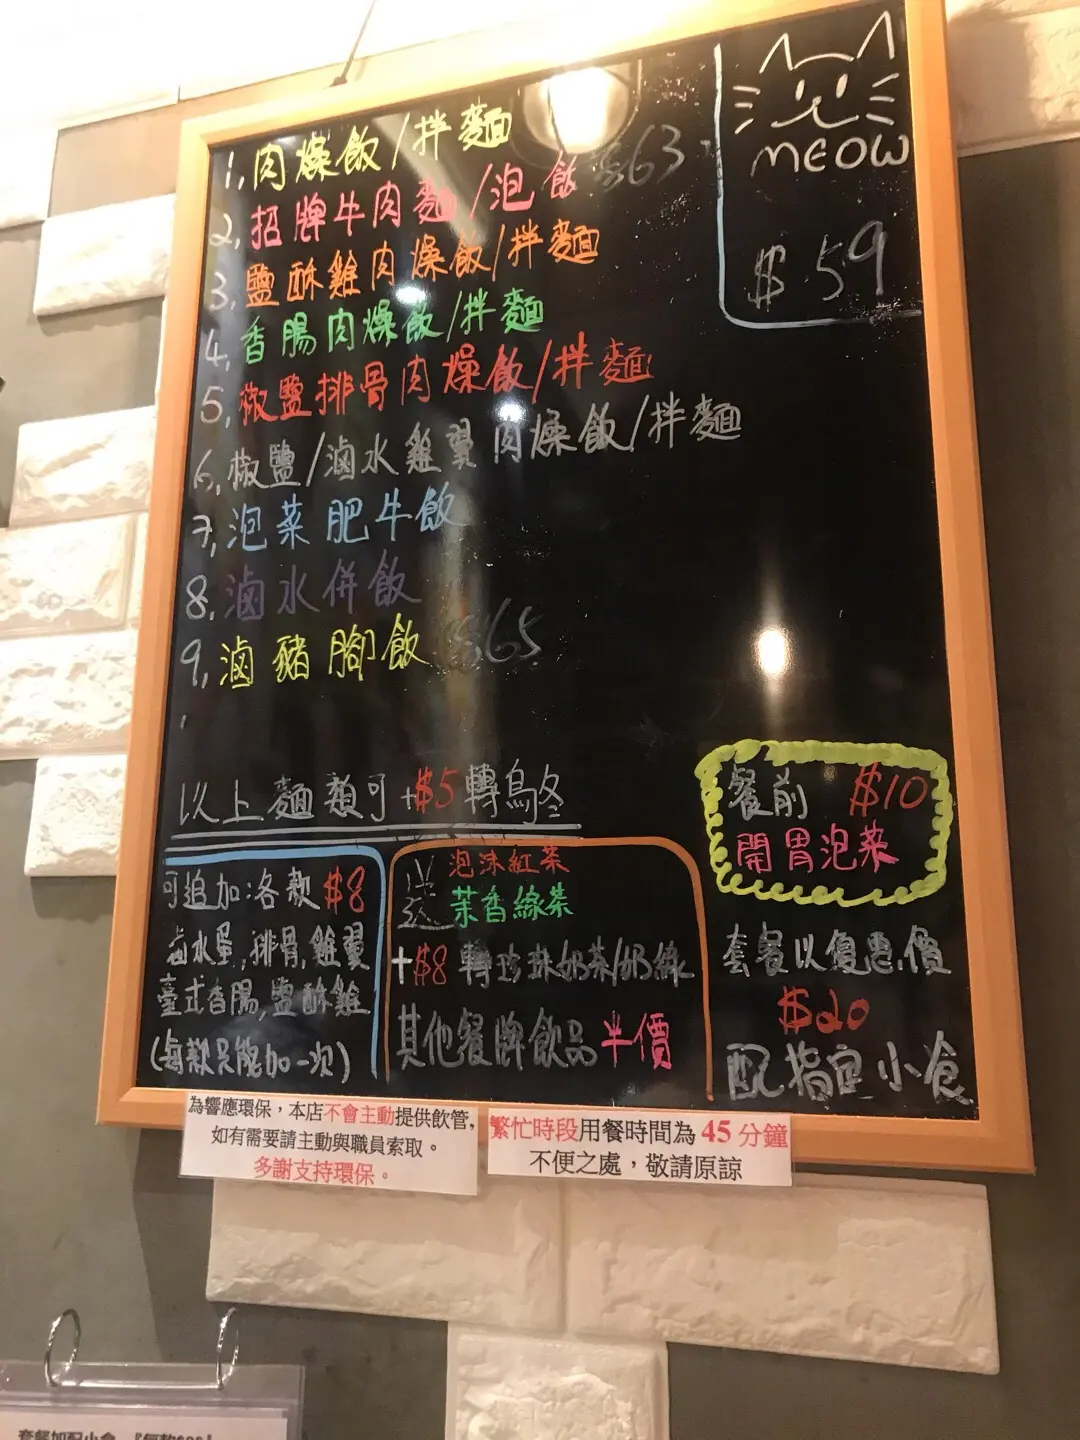 MEOW
$59
1, 肉燥飯/拌麵
2, 招牌牛肉麵/泡飯 $63
3, 鹽酥雞肉燥飯/拌麵
4, 香腸肉燥飯/拌麵
5, 椒鹽排骨肉燥飯/拌麵
6, 椒鹽/滷水雞翼肉燥飯/拌麵
7, 泡菜肥牛飯
8, 滷水併飯
9, 滷豬腳飯 $65
以上麵類可+$5轉烏冬
可追加:各款$8
滷水蛋,排骨,雞翼
臺式香腸,鹽酥雞
(每款只能加一次)
送 泡沫紅茶
茉香綠茶
+$8 轉珍珠奶茶/奶綠
其他餐牌飲品半價
餐前 $10
開胃泡菜
套餐以優惠價
$20
配指定小食
為響應環保，本店不會主動提供飲管,
如有需要請主動與職員索取。
多謝支持環保。
繁忙時段用餐時間為 45 分鐘
不便之處，敬請原諒